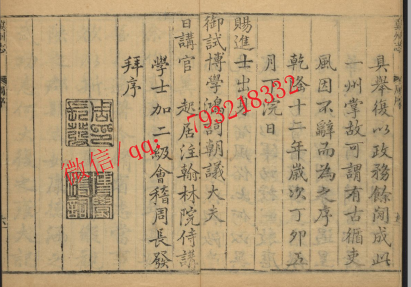 具舉復以政務餘閒成此
一州掌故可謂有古循吏
風因不辭而為之序
乾隆十二年歲次丁卯五
月下浣日
賜進士出身
御試博學鴻詞朝議大夫
日講官 起居注翰林院侍講
學士加二級會稽周長發
拜序
微信/qq: 793218332